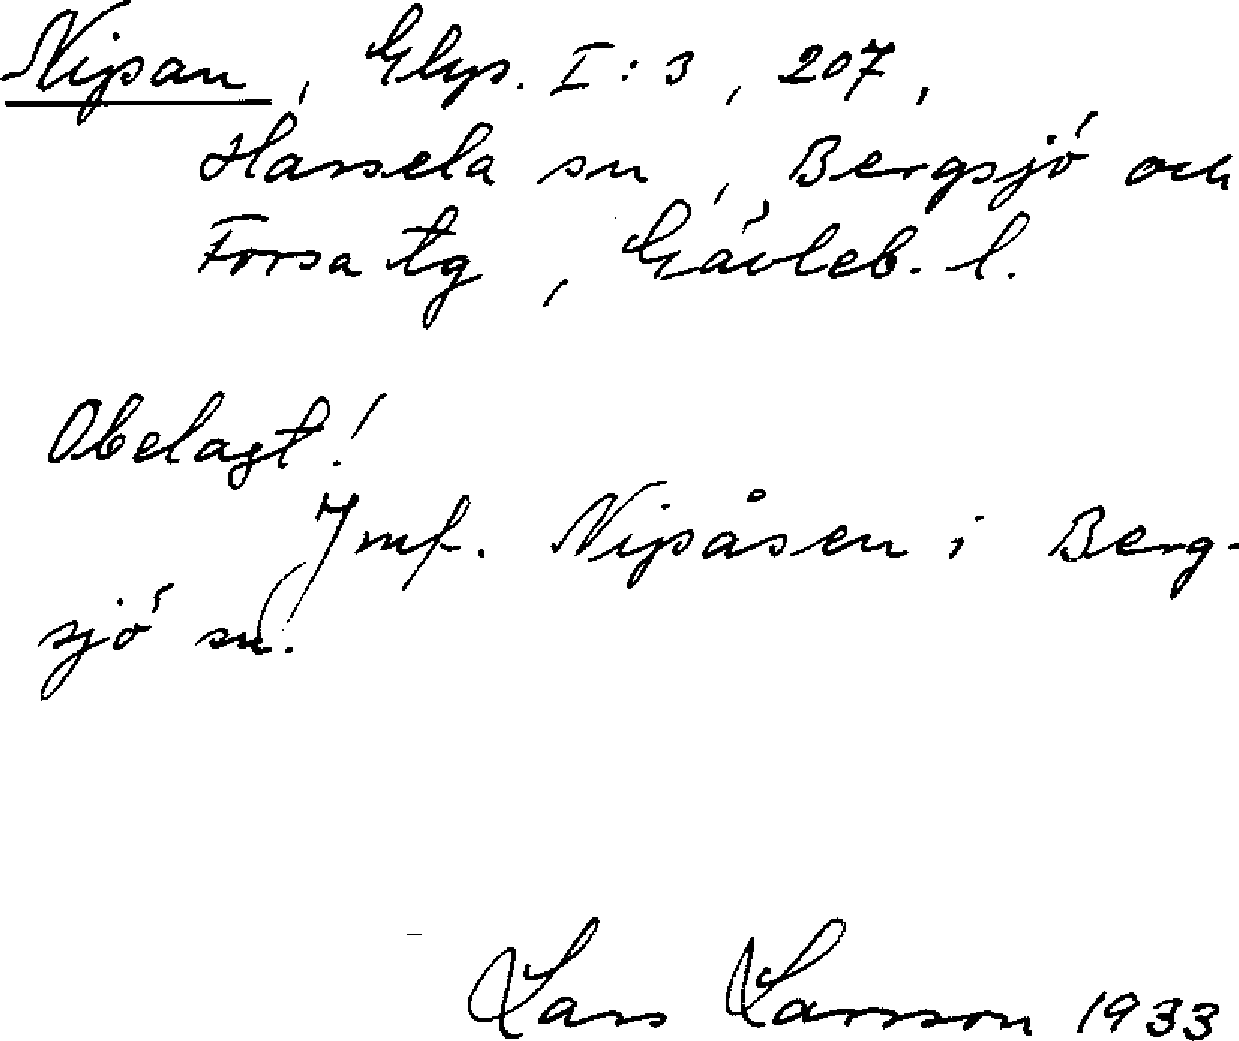 Nipan, Glys. I:3, 207,
Hassela sn, Bergsjö och
Forsa tg, Gävleb. l.
Obelagt!
Jmf. Nipåsen i Berg-
sjö sn.
Lars Larsson 1933